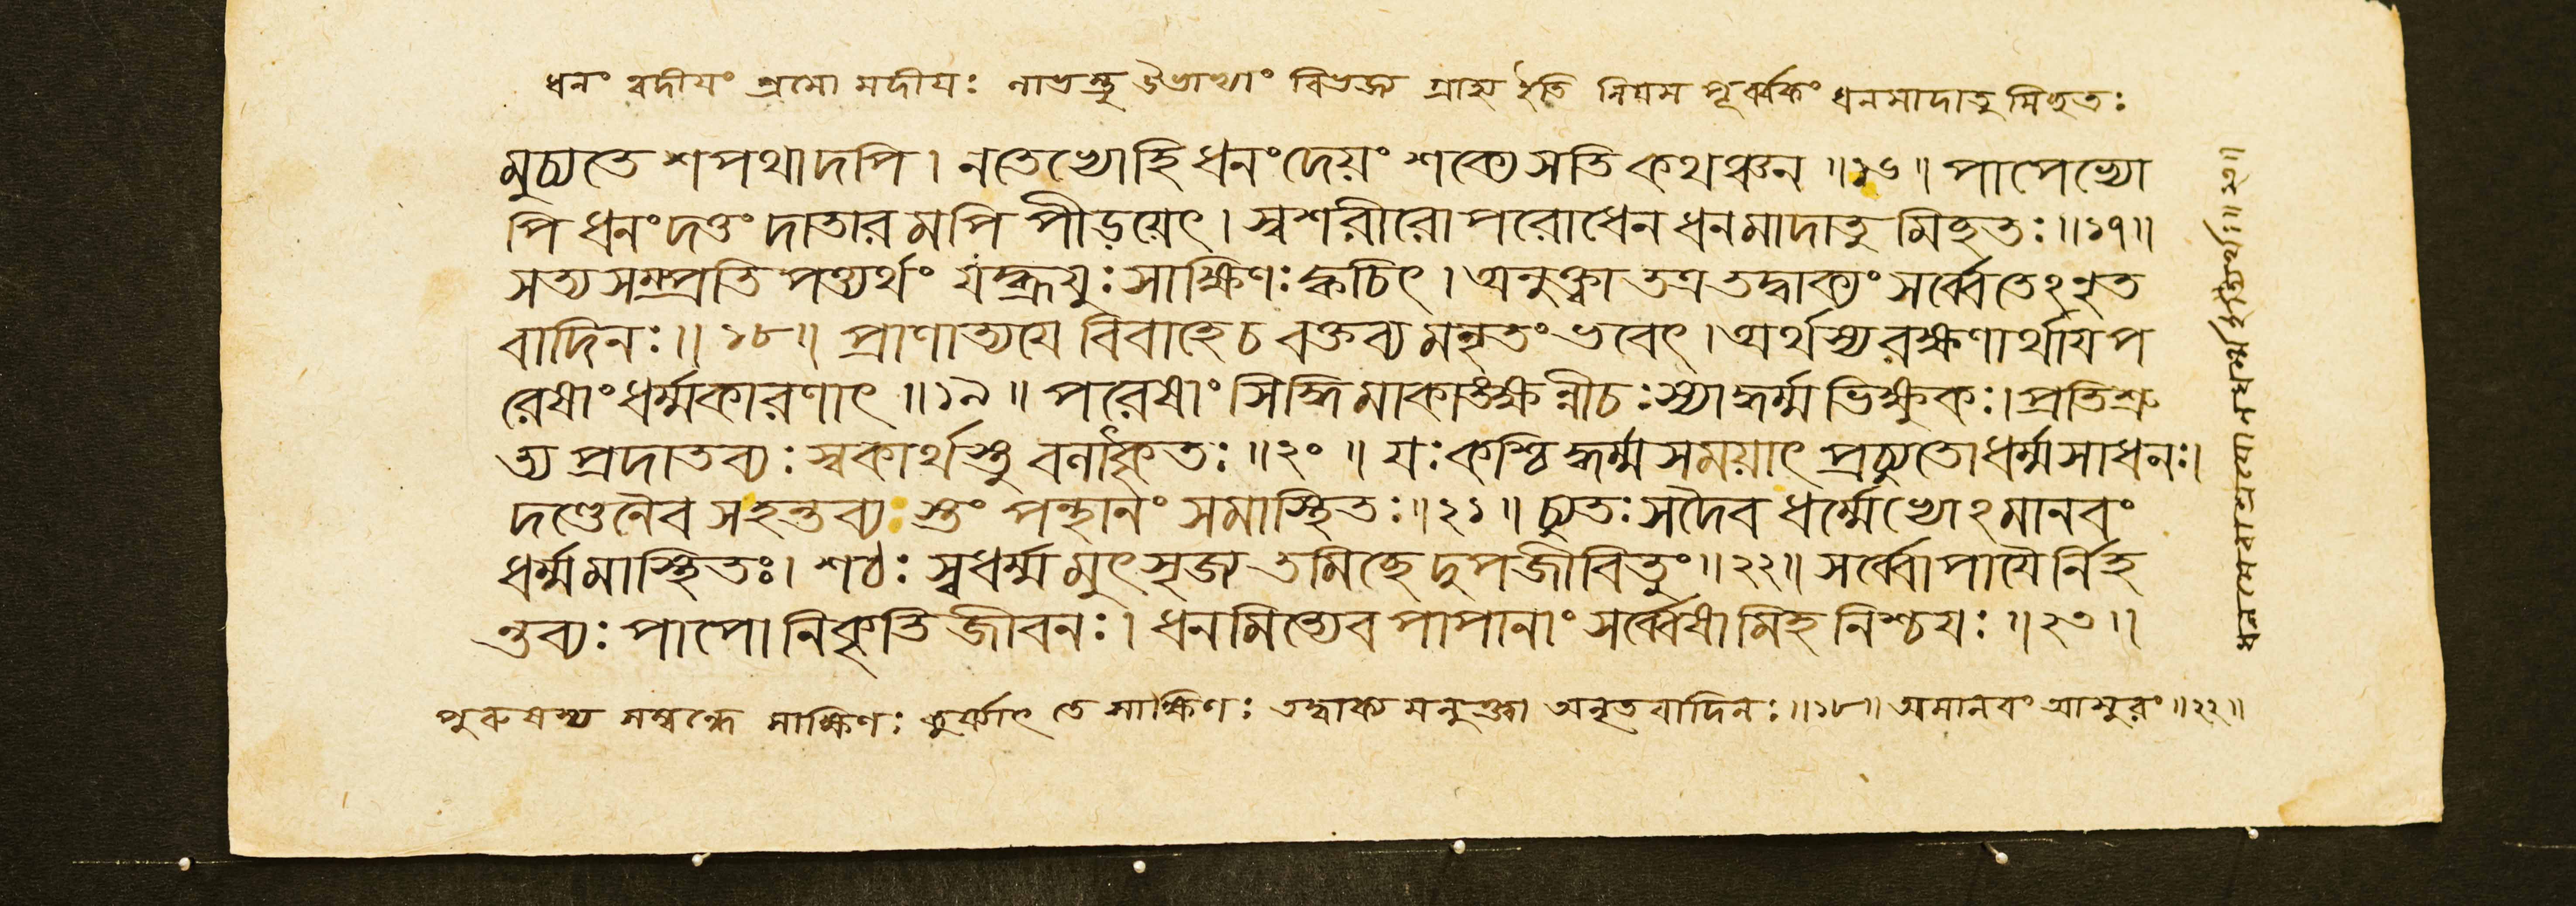 ধনং ত্বদীয়ং শ্রমো মদীয়ঃ লাভস্তু উভাভ্যাং বিভজ্য গ্রাহ্য ইতি নিয়ম পূর্ব্বকং ধনমাদাতু মিছতঃ
মুচ্যতে শপথাদপি। নতেভ্যোহি ধনংদেয়ং শক্যে সতি কথঞ্চন ॥১৬॥ পাপেভ্যো
পি ধনংদত্তং দাতার মপি পীড়য়েৎ। স্বশরীরো পরোধেন ধনমাদাতু মিছতঃ॥১৭॥
সত্য সম্প্রতি পত্যর্থং যংব্রূয়ুঃ সাক্ষিণঃ ক্বচিৎ। অনুক্ত্বা তত্র তদ্বাক্যং সর্ব্বেতেঽনৃত
বাদিনঃ॥১৮॥ প্রাণাত্যয়ে বিবাহেচ বক্তব্য মনৃতং ভবেৎ। অর্থস্য রক্ষণার্থায় প
রেষাং ধর্ম্মকারণাৎ ॥১৯॥ পরেষাং সিদ্ধি মাকাঙক্ষ ন্নীচঃ স্যাদ্ধর্ম্ম ভিক্ষুকঃ। প্রতিশ্রু
ত্য প্রদাতব্যঃ স্বকার্থস্তু বলাৎকৃতঃ॥২০॥ যঃ কশ্চি দ্ধর্ম্ম সময়াৎ প্রচ্যুতো ধর্ম্ম সাধনঃ।
দণ্ডেনৈব সহন্তব্য স্তং পন্থানং সমাস্থিতঃ॥২১॥ চ্যুতঃ সদৈব ধর্ম্মেভ্যোঽমানবং
ধর্ম্ম মাস্থিতঃ। শঠঃ স্বধর্ম্ম মুৎসৃজ্য তমিছে দুপজীবিতুং॥২২॥ সর্ব্বোপায়ৈ র্নিহ
ন্তব্যঃ পাপো নিকৃতি জীবনঃ। ধনমিত্যেব পাপানাং সর্ব্বেষা মিহ নিশ্চয়ঃ॥২৩॥
পুরুষস্য সম্বন্ধে সাক্ষিণঃ তে সাক্ষিণঃ তদ্বাক্য মনুক্ত্বা অনৃত বাদিনঃ॥১৮॥ অমানবং আসুরং॥২২॥